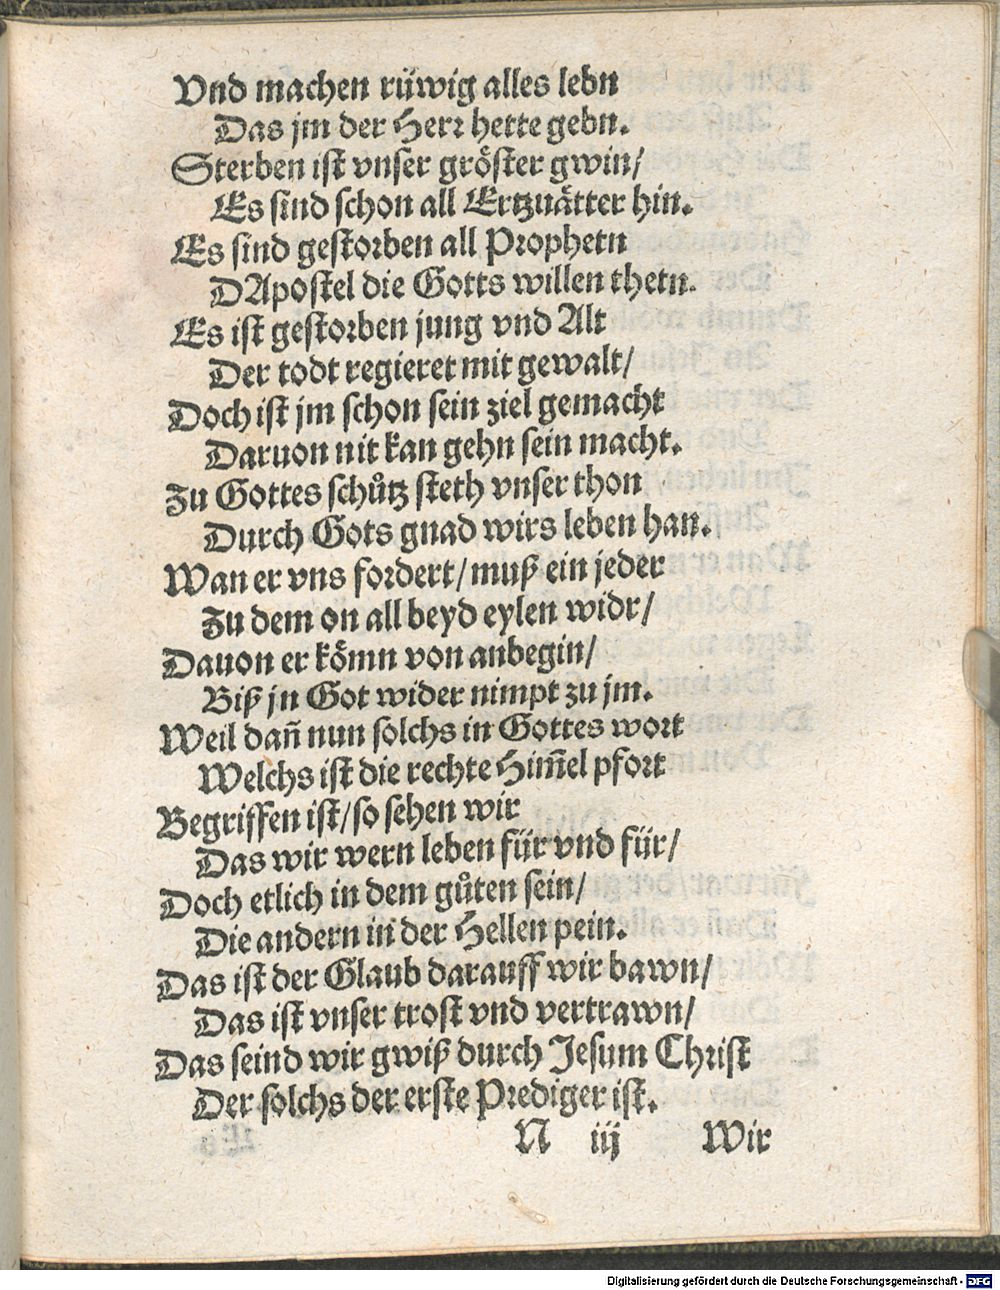 Vnd machen rüwig alles lebn
Das jm der Herr hette gebn.
Sterben ist vnser gröster gwin/
Es sind schon all Ertzuätter hin.
Es sind gestorben all Prophetn
DApostel die Gotts willen thetn.
Es ist gestorben jung vnd Alt
Der todt regieret mit gewalt/
Doch ist jm schon sein ziel gemacht
Daruon nit kan gehn sein macht.
Zu Gottes schůtz steth vnser thon
Durch Gots gnad wirs leben han.
Wan er vns fordert/muß ein jeder
Zu dem on all beyd eylen widr/
Dauon er kömn von anbegin/
Biß jn Got wider nimpt zu jm.
Weil dañ nun solchs in Gottes wort
Welchs ist die rechte Him̃el pfort
Begriffen ist/so sehen wir
Das wir wern leben für vnd für/
Doch etlich in dem gůten sein/
Die andern in der Hellen pein.
Das ist der Glaub darauff wir bawn/
Das ist vnser trost vnd vertrawn/
Das seind wir gwiß durch Jesum Christ
Der solchs der erste Prediger ist.
N iij Wir
Digitalisierung gefördert durch die Deutsche Forschungsgemeinschaft - DFG